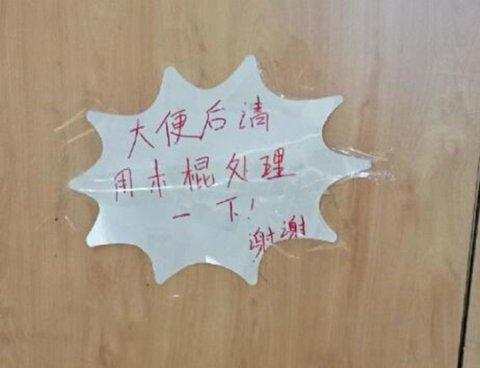 大便后清
用木棍处理
一下!
谢谢